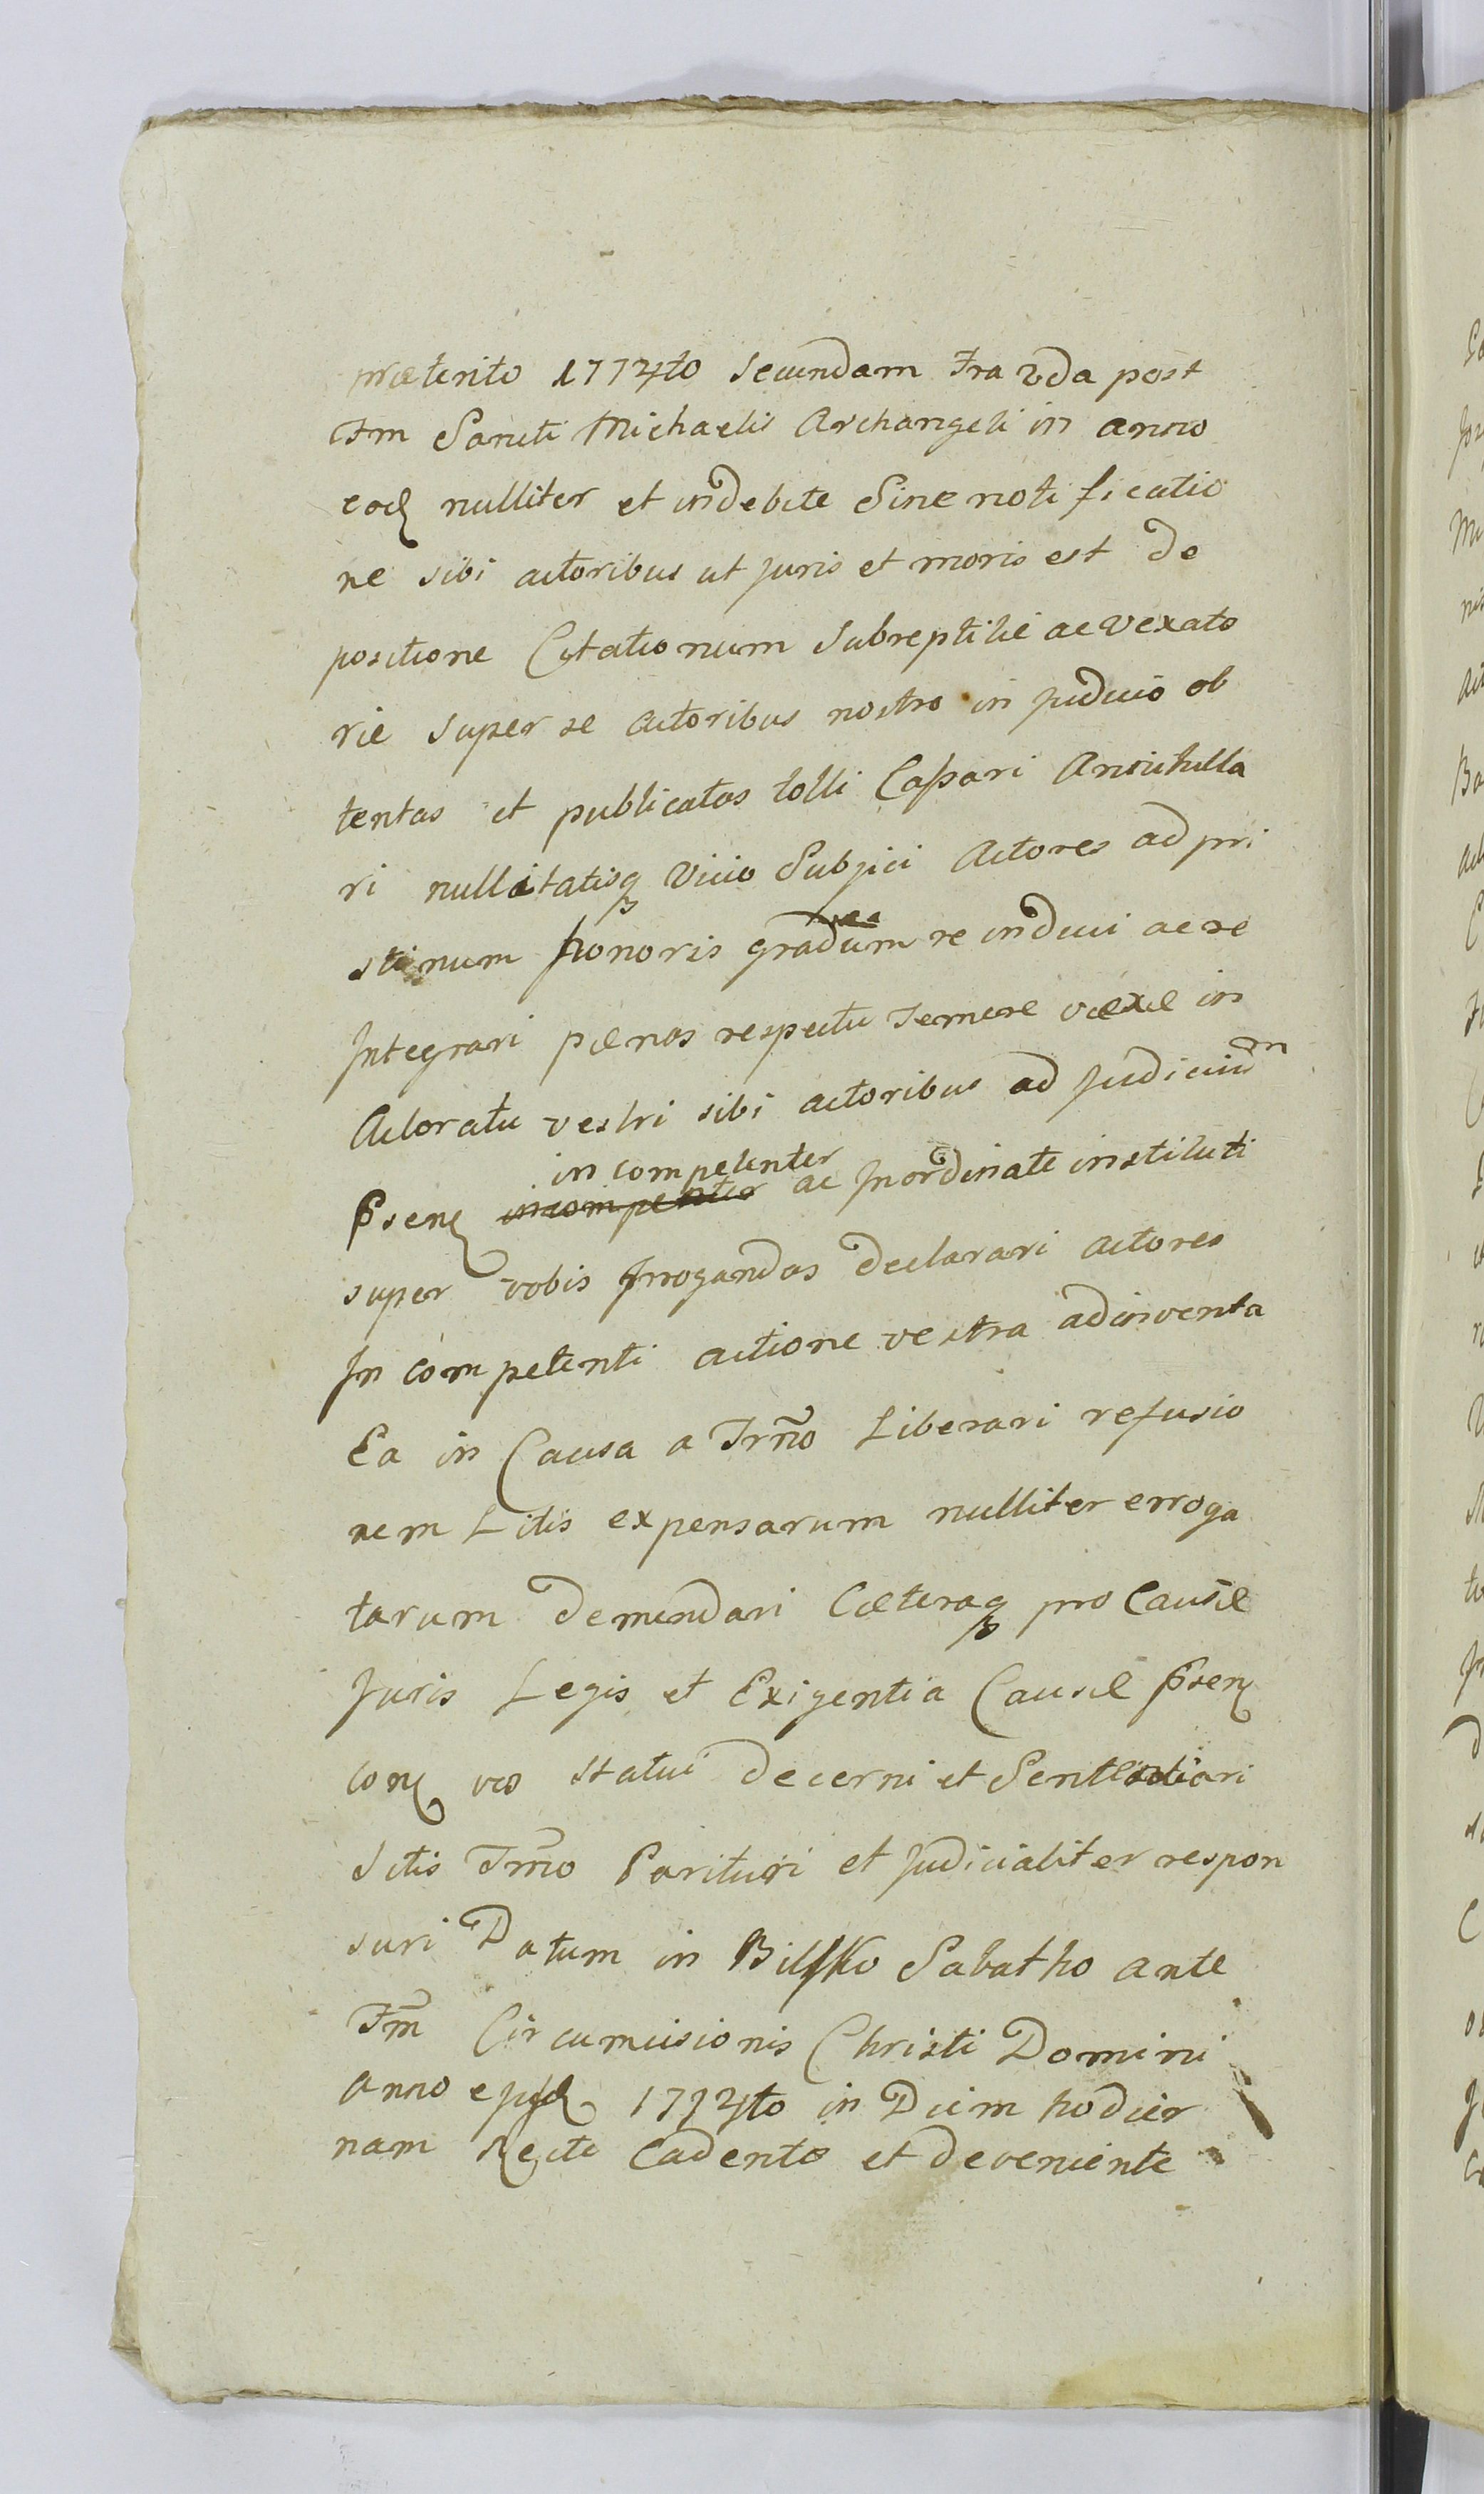 præterito 1774to Secundam Fra 2da post
Fm Sancti Michaelis Archangeli in anno
eod nulliter et indebite Sine notificatio
ne sibi actoribus ut Juris et moris est de
positione Citationum Subreptitie ac vexato
rie super se actoribus nostro in Judicio ob
tentas et publicatas tolli Cassari Annichilla
ri nullitatisq Vicio Subjici Actores ad pri
stinum honoris gradum re induci ac re
Integrari pænas respectu Temere væxæ in
Actoratu vestri sibi actoribus ad Judicium
incompetenter
Psen incompenter ac Inordinate instituti
super vobis Irrogandas declarari actores
In competenti actione vestra adinventa
Ea in Causa a Trno Liberari refusio
nem Litis expensarum nulliter erroga
tarum demandari Cæteraq pro Causæ
Juris Legis et Exigentia Causæ Psen
con vos statui decerni et Sententiari
Sitis Trmo Parituri et Judicialiter respon
suri Datum in Bilsko Sabatho ante
Fm Circumcisionis Christi Domini
Anno ejusd 1774to in Diem hodier
nam Recte Cadento et deveniente